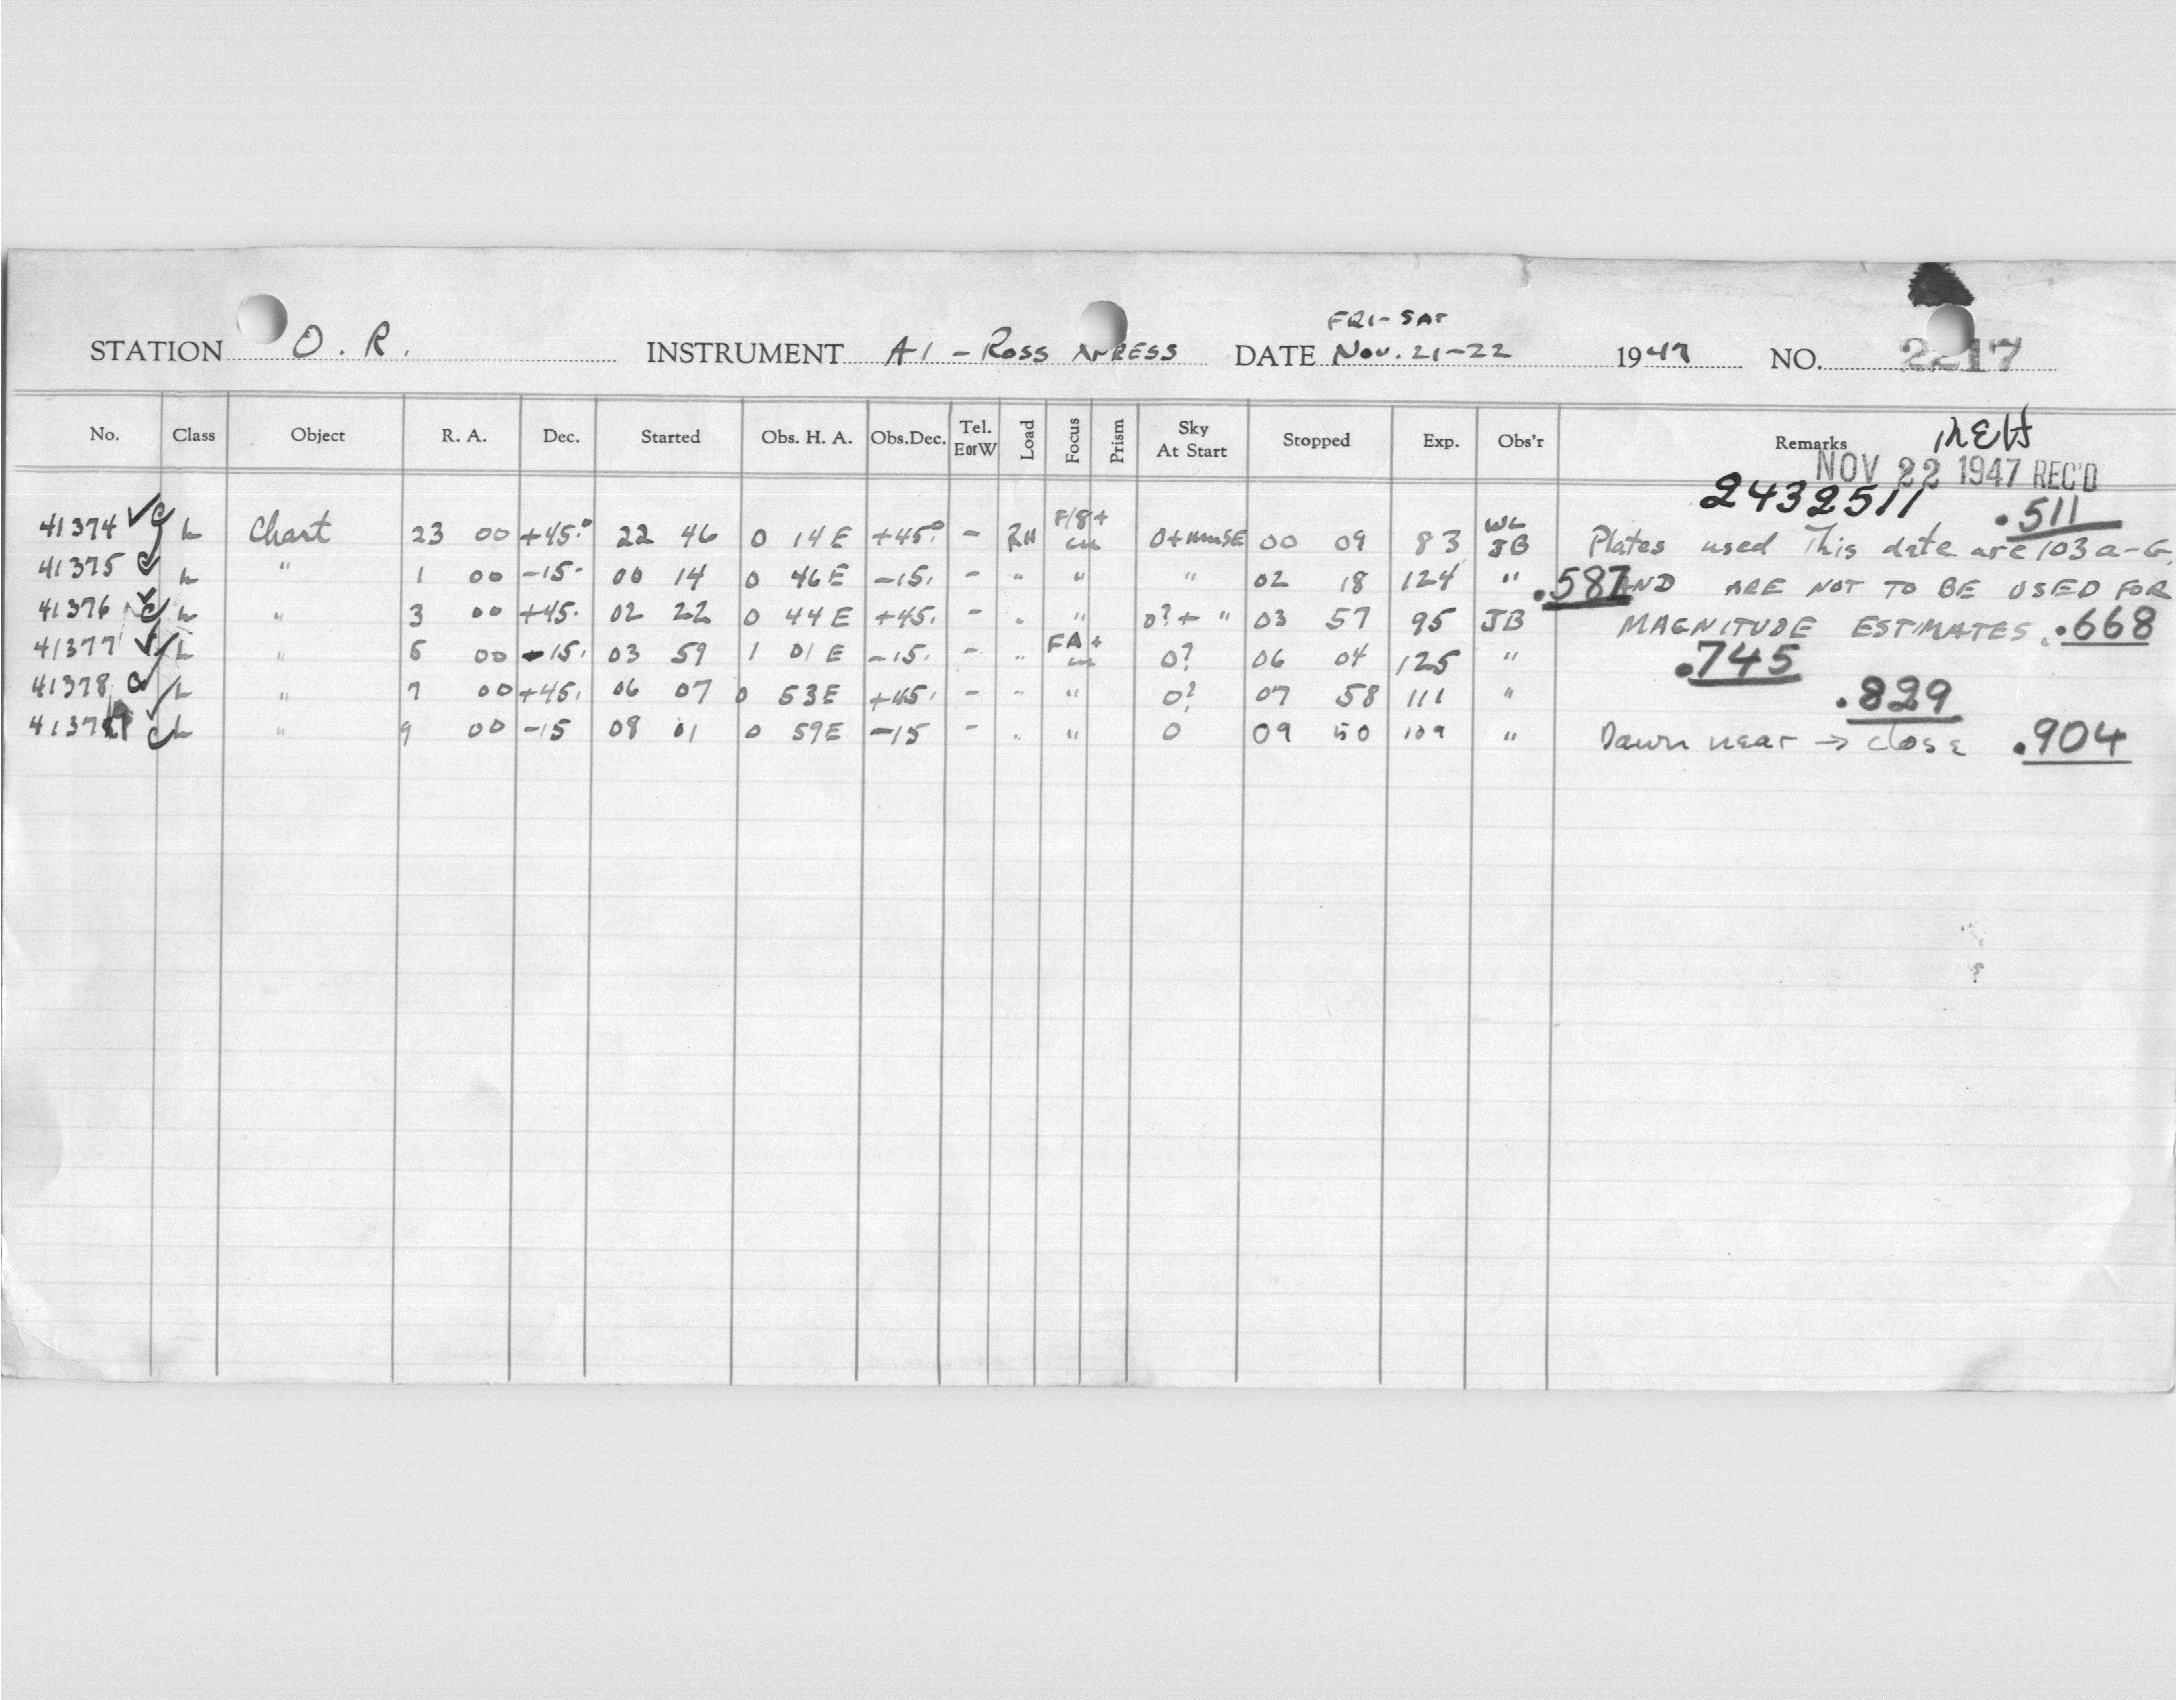 FRI-SAT
STATION O. R. INSTRUMENT A1 - Ross XPRESS DATE Nov. 21-22 1947 NO. 2217
No. Class Object R. A. Dec. Started Obs. H. A. Obs.Dec. Tel. EorW Load Focus Prism Sky At Start Stopped Exp. Obs'r Remarks
NOV 22 1947 REC'D
2432511
41374 L Chart 23 00 +45° 22 46 0 14 E +45° - RH F/8+ 0+ SE 00 09 83 WL JB Plates used This date are 103a-G .511
41375 L " 1 00 -15. 00 14 0 46E -15. - " " " 02 18 124 " .587 AND ARE NOT TO BE USED FOR
41376 L " 3 00 +45. 02 22 0 44 E +45. - " " 0? + " 03 57 95 JB MAGNITUDE ESTIMATES. .668
41377 L " 5 00 -15. 03 59 1 01 E -15. - " FA+ 0? 06 04 125 " .745
41378 L " 7 00 +45. 06 07 0 53E +45. - " " 0? 07 58 111 " .829
41379 L " 9 00 -15 08 01 0 59E -15 - " " 0 09 50 109 " Dawn near → close .904